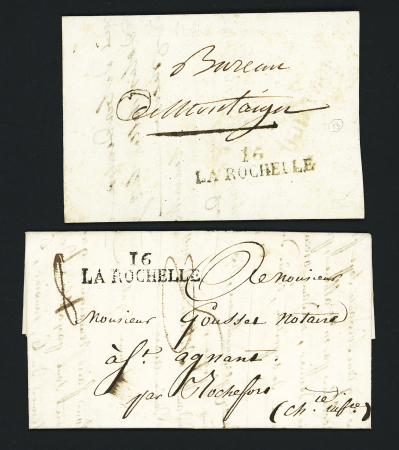 Bureau
De Montaigu
16
LA ROCHELLE
16
LA ROCHELLE
A Monsieur
Monsieur Gousset Notaire
à St. agnant.
par Rochefort
(Ch.te infre)